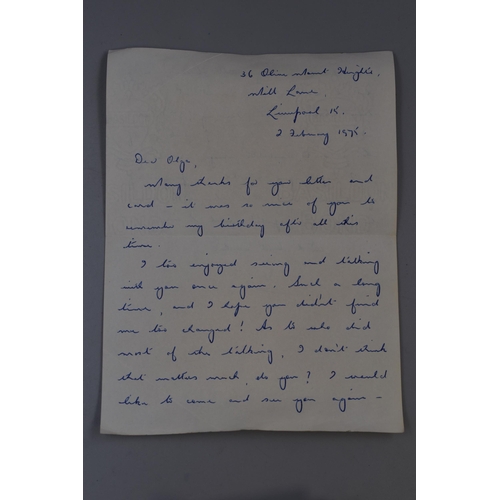 36 Mount Heights,
Mill Lane,
Liverpool 15.
2 February 1975.
Dear Olga,
Many thanks for your letter and
card - it was so nice of you to
remember my birthday after all this
time.
I too enjoyed seeing and talking
with you once again. Such a long
time, and I hope you didn't find
me too changed! As to who did
most of the talking, I don't think
that matters much, do you? I would
like to come and see you again -